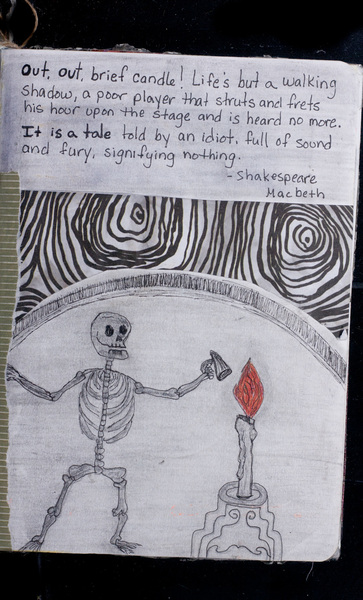 Out, out, brief candle! Life's but a walking
shadow, a poor player that struts and frets
his hour upon the stage and is heard no more.
It is a tale told by an idiot, full of sound
and fury, signifying nothing.
- Shakespeare
Macbeth